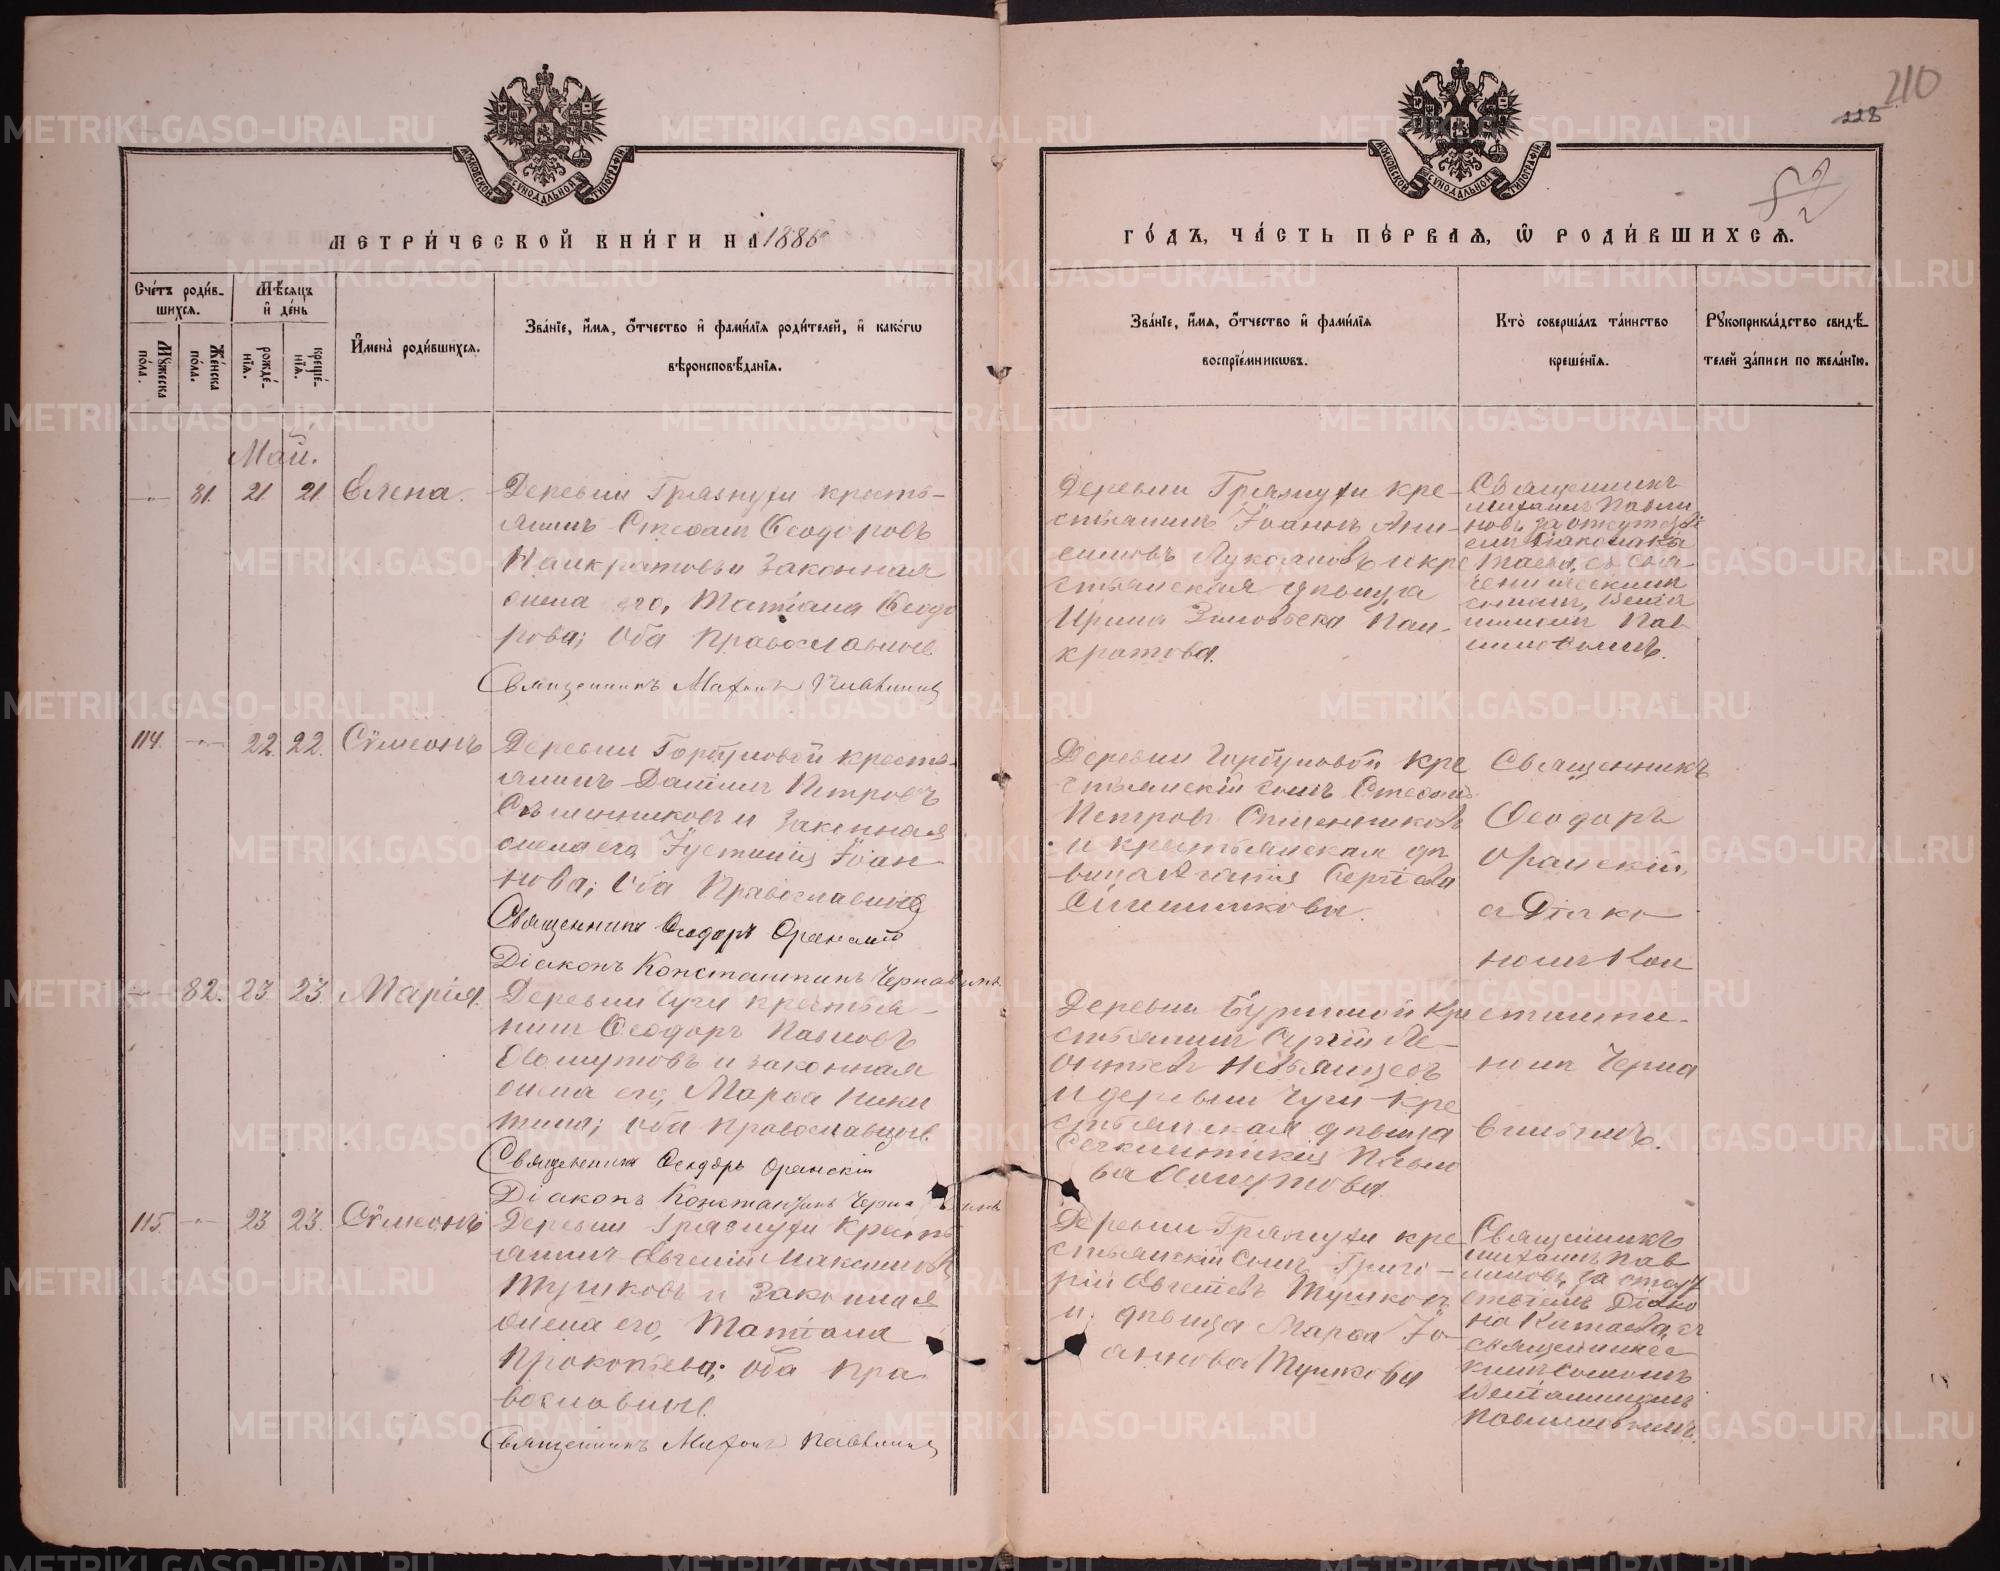 210
228
МОСКОВСКОЙ СѴНОДАЛЬНОЙ ТИПОГРАФІИ
МОСКОВСКОЙ СѴНОДАЛЬНОЙ ТИПОГРАФІИ
МЕТРИ́ЧЕСКОЙ КНИ́ГИ НА 1886
ГО́ДЪ, ЧА́СТЬ ПЕ́РВАѦ, Ѿ РОДИ́ВШИХСѦ.
Сче́тъ роди́в-
шихсѧ.
Мѣ́сѧцъ
и҆ де́нь
Мꙋ́жеска
по́ла.
Же́нска
по́ла.
рожде́-
нїѧ.
креще́-
нїѧ.
И҆мена̀ роди́вшихсѧ.
Зва́нїе, и҆́мѧ, ѻ҆́тчество и҆ фами́лїѧ роди́телей, и҆ како́гѡ
вѣроисповѣ́данїѧ.
Зва́нїе, и҆́мѧ, ѻ҆́тчество и҆ фами́лїѧ
воспрїе́мникѡвъ.
Кто̀ соверша́лъ та́инство
креще́нїѧ.
Рꙋкоприкла́дство свидѣ́-
телей за́писи по жела́нїю.
Май.
81. 21 21 Елена.
Деревни Грязнухи кресть-
янинъ Стефанъ Ѳеодоровъ
Панкратовъ и законная
жена его, Татіана Ѳеодо
рова; оба православные
Священникъ Михаилъ Павлинов
Деревни Грязнухи кре-
стьянинъ Іоаннъ Ани-
симовъ Лукояновъ и кре
стьянская дѣвица
Ирина Зиновьева Пан-
кратова.
Священникъ
Михаилъ Павли
новъ, за отсутстві
емъ Діакона Ки
таева, съ свя
щенническимъ
сыномъ, Венiа
миномъ Пав
линовымъ.
114. 22. 22. Сѵмеонъ
Деревни Горбуновой кресть-
янинъ Даніилъ Петровъ
Спѣшниковъ и законная
жена его, Іустинія Іоан-
нова; оба православные
Священникъ Ѳеодоръ Оранскій
Діаконъ Константинъ Чернавинъ
Деревни Горбуновой кре
стьянскій сынъ Стефанъ
Петровъ
и крестьянская дѣ
вица
Священникъ
Ѳеодоръ
Оранскій,
съ Діако
номъ Кон
стантин-
номъ Черна
винымъ.
82. 23. 23. Марія.
Деревни Чуги крестья-
нинъ Ѳеодоръ Павловъ
и законная
жена его, Марѳа Ники
тина; оба православные.
Священникъ Ѳеодоръ Оранскій
Діаконъ Константинъ Чернавинъ
Деревни Бурлиной кре
стьянинъ Сергій Ле-
онтьевъ Невьянцевъ
и деревни Чуги кре
стьянская дѣвица
115. 23 23. Сѵмеонъ
Деревни Грязнухи кресть
янинъ Евгеній Максимовъ
Тушковъ и законная
жена его, Татіана
Прокопьева; оба пра
вославные.
Священникъ Михаилъ Павлинов
Деревни Грязнухи кре-
стьянскій сынъ Григо-
рій Евгеніевъ Тушковъ
и дѣвица Марѳа Іо-
аннова Тушкова
Священникъ
Михаилъ Пав
линовъ, за отсут
ствіемъ Діако
на Китаева, съ
священничес
кимъ сыномъ
Веніаминомъ
Павлиновымъ.
METRIKI.GASO-URAL.RU